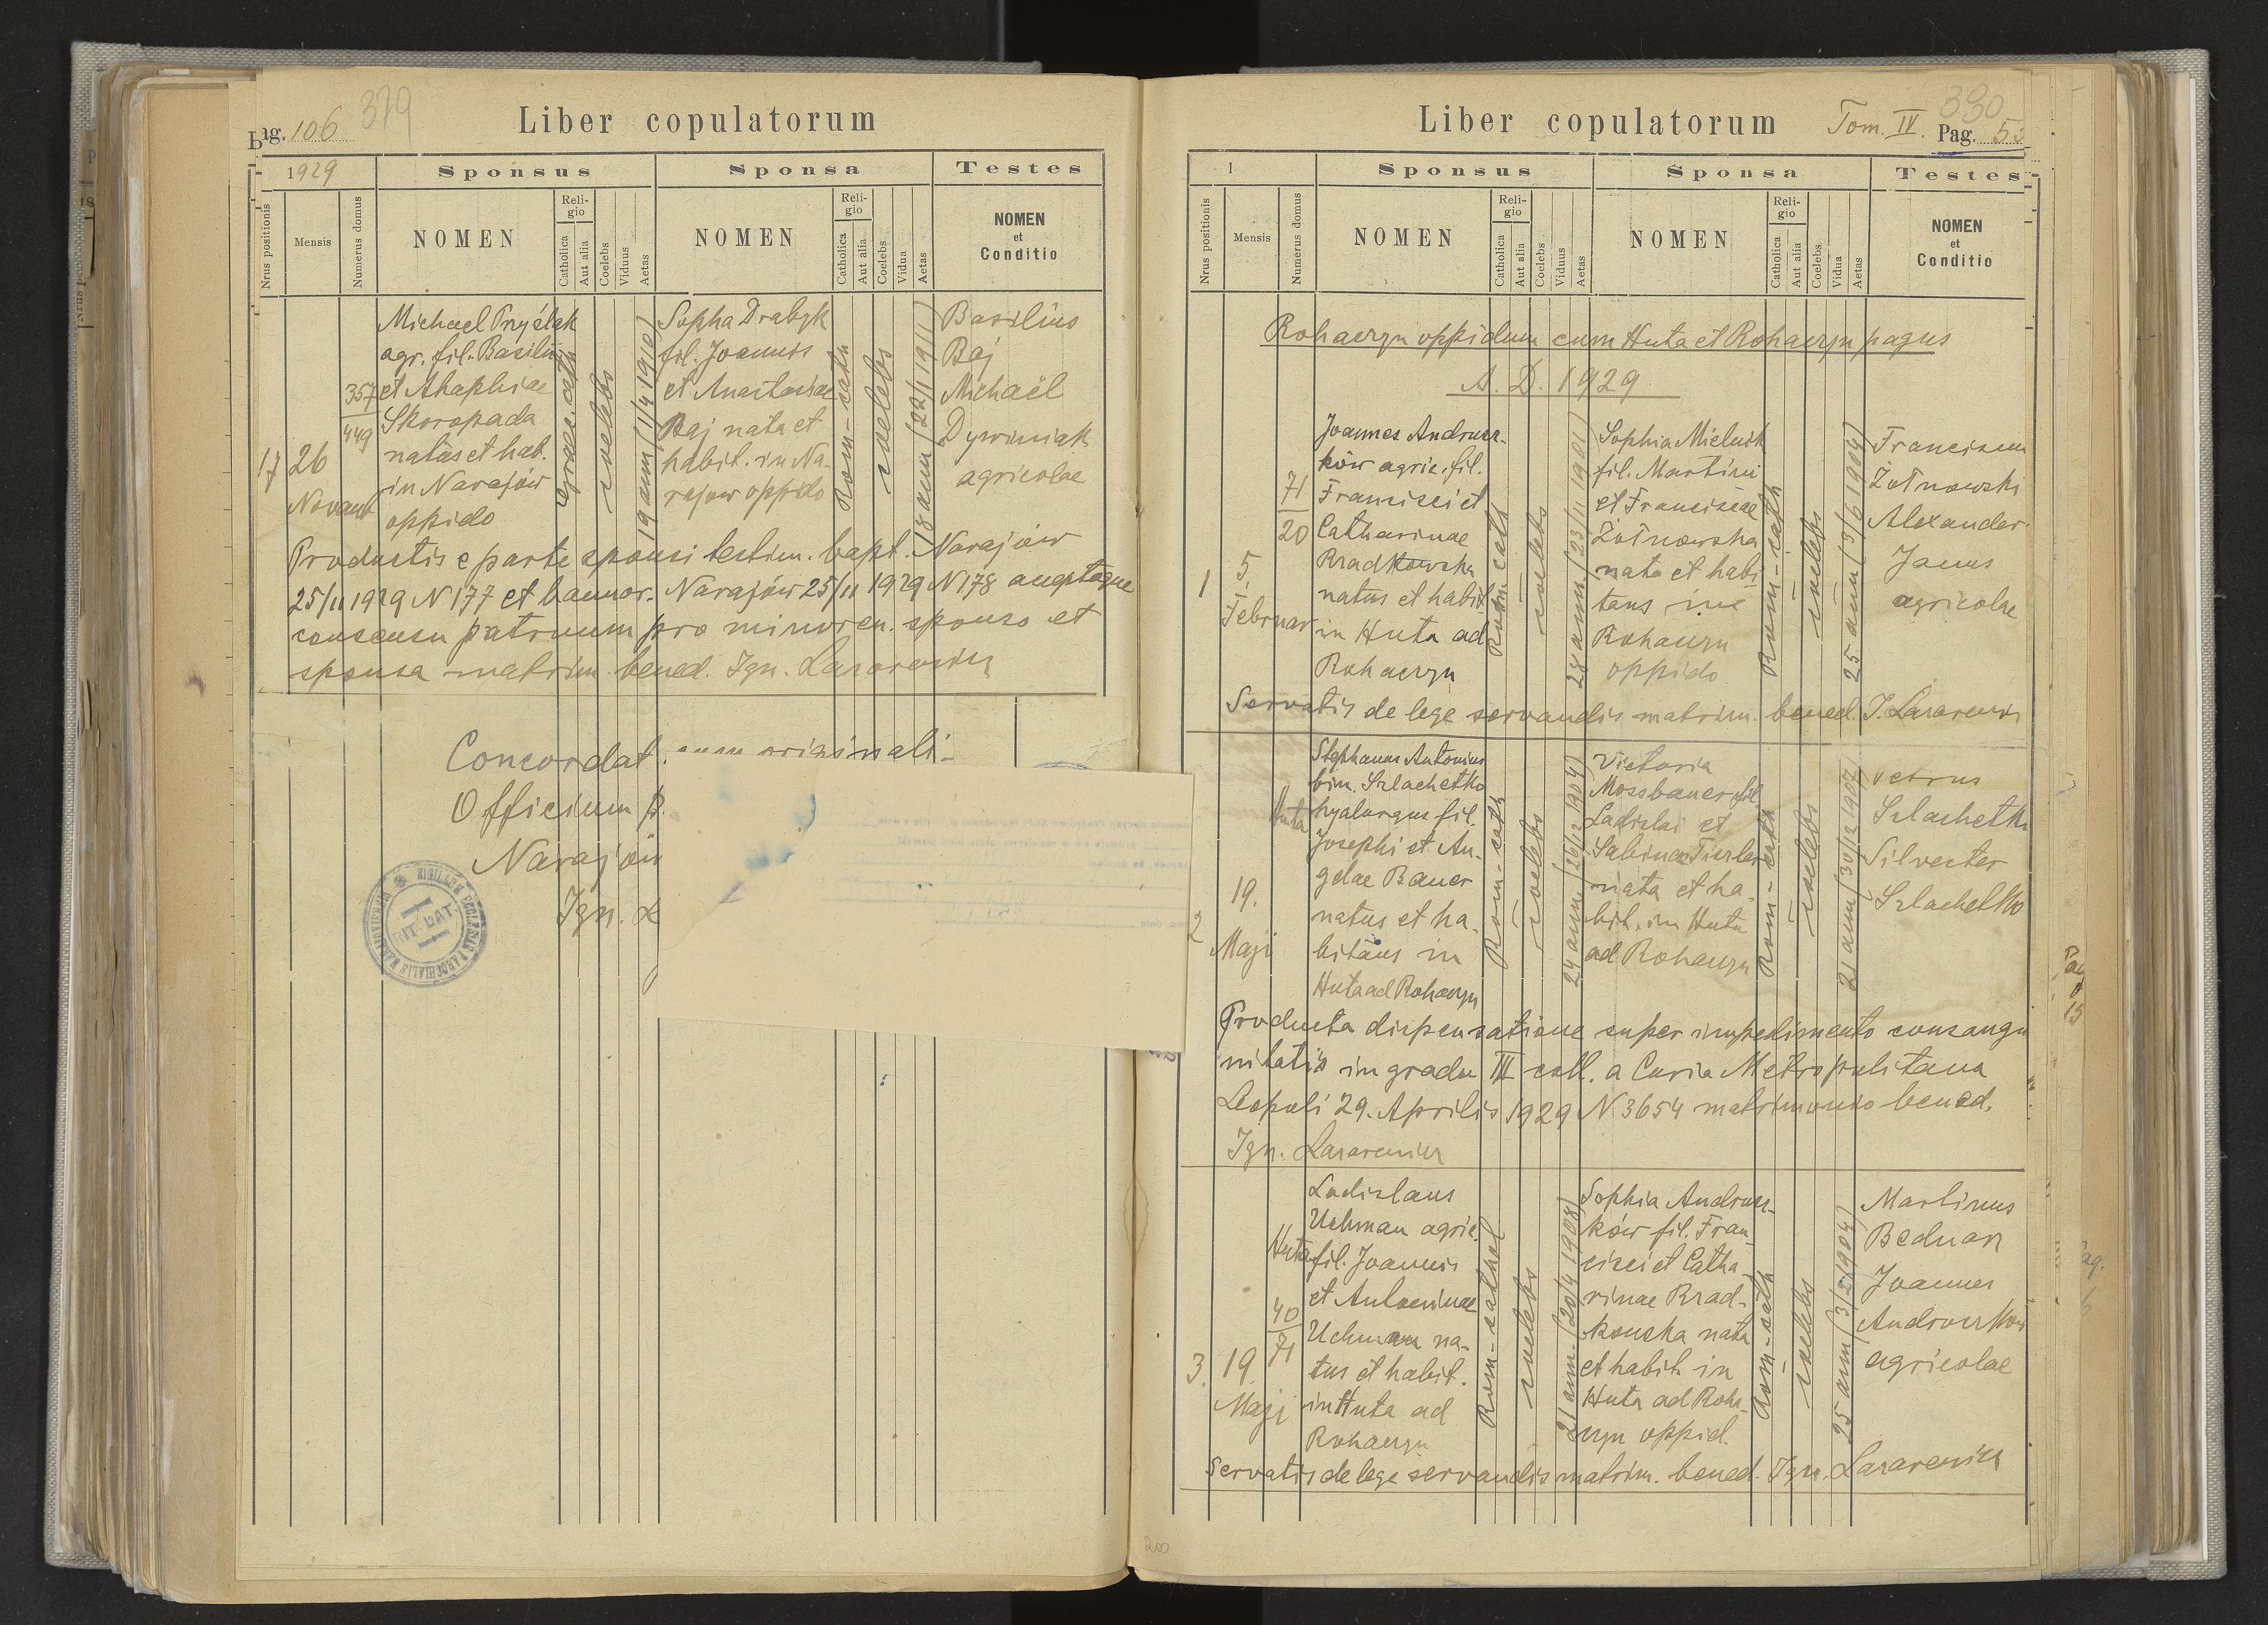 Liber copulatorum
Pag. 106 379
1929
Sponsus
Sponsa
Testes
Nrus positionis
Mensis
Numerus domus
NOMEN
Religio
Catholica
Aut alia
Coelebs
Viduus
Aetas
NOMEN
Religio
Catholica
Aut alia
Coelebs
Vidua
Aetas
NOMEN
et
Conditio
17
26
Novemb
357
449
Michael
agr. fil. Basilii
et Ahaphiae
Skoropada
natus et hab.
in Narajów
oppido
Graec. cath
coelebs
19 ann (1/4 1910)
Sopha Drabyk
fil. Joannis
et Anastasiae
Baj nata et
habit. in Na-
rajow oppido
Rom-cath
coelebs
18 ann (22/1 1911)
Basilius
Baj
Michaël
Dywiniak
agricolae
Productis e parte sponsi testim. bapt. Narajów
25/11 1929 N 177 et bannor. Narajów 25/11 1929 N 178
consensu patruum pro minoren. sponso et
sponsa matrim. bened. Ign. Lazarewicz
Concordat cum originali
Officium p.
Narajów
Ign. L
SIGILLUM ECCLESIAE PAROCHIALIS NARAJOVIENSIS
RIT. LAT.
Liber copulatorum
Tom. IV. 380
Pag. 53
1
Sponsus
Sponsa
Testes
Nrus positionis
Mensis
Numerus domus
NOMEN
Religio
Catholica
Aut alia
Coelebs
Viduus
Aetas
NOMEN
Religio
Catholica
Aut alia
Coelebs
Vidua
Aetas
NOMEN
et
Conditio
Rohaczyn oppidum cum Huta et Rohaczyn pagus
A. D. 1929
1
5
Februar
71
20
Joannes Andrusz-
ków agric. fil.
Francisci et
Catharinae
Rradkowska
natus et habit.
in Huta ad
Rohaczyn
Rom cath
coelebs
28 ann (23/11 1901)
Sophia Mielnik
fil. Martini
et Franciscae
Żołnowska
nata et habi
tans in
Rohaczyn
oppido
Rom-cath
coelebs
25 ann (3/6 1904)
Franciscus
Żołnowski
Alexander
Janus
agricolae
Servatis de lege servandis matrim. bened. I. Lazarewicz
2
19.
Maji
Huta
Stephanus Antonius
bin. Szlachetko
hyalurgus fil.
Josephi et An-
gelae Bauer
natus et ha-
bitans in
Huta ad Rohaczyn
Rom-cath
coelebs
24 ann (26/12 1904)
Victoria
Mossbauer fil.
Ladislai et
Sabinae
nata et ha-
bit. in Huta
ad Rohaczyn
Rom-cath
coelebs
21 ann (30/12 1907)
Petrus
Szlachetko
Silvester
Szlachetko
Producta dispensatione super impedimento consangu
nitatis in gradu III coll. a Curia Metropolitana
Leopoli 29. Aprilis 1929 N 3654 matrimonio bened.
Ign. Lazarewicz
3.
19.
Maji
Huta
40
71
Ladislaus
Uchman agric.
fil. Joannis
et Antoninae
Uchman na-
tus et habit.
in Huta ad
Rohaczyn
Rom-cathol
coelebs
21 ann. (20/4 1908)
Sophia Andrusz-
ków fil. Fran-
cisci et Catha
rinae Rrad-
kowska nata
et habit. in
Huta ad Roha-
czyn oppid.
Rom-cath
coelebs
25 ann (3/2 1904)
Martinus
Bednarz
Joannes
Andruszków
agricolae
Servatis de lege servandis matrim. bened. Ign. Lazarewicz
200